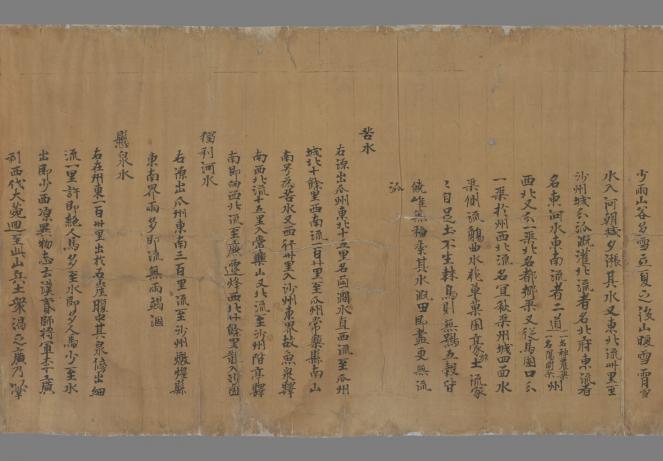 少雨山谷多雪立夏之後山暖雪消雪
水入河朝減夕漲其水又東北流卌里至
沙州城分派溉灌北流者名北府東流者
名東河水東南流者二道一名神農渠一名陽開渠州
西北又分一渠北名都鄉渠又從馬圈口分
一渠於州西北流名宜秋渠州城四面水
渠側流觴曲水花草果園豪族士流家
家自足土不生棘鳥則無鴞五穀皆
饒唯無稻黍其水溉田即盡更無流
派
苦水
右源出瓜州東北十五里名鹵澗水直西流至瓜州
城北十餘里西南流一百廿里至瓜州常樂縣南山
南号為苦水又西行卅里入沙州東界故魚泉驛
南西北流十五里入常樂山又北流至沙州階亭驛
南即向西北流至廣邊烽西北廿餘里散入沙鹵
獨利河水
右源出瓜州東南三百里流至沙州燉煌縣
東南界雨多即流無雨竭涸
懸泉水
右在州東一百卅里出於石崖腹中其泉傍出細
流一里許即絕人馬多至水即多人馬少至水
出即少西涼異物志云漢貳師將軍李廣
利西伐大宛迴至此山兵士眾渴乏廣乃